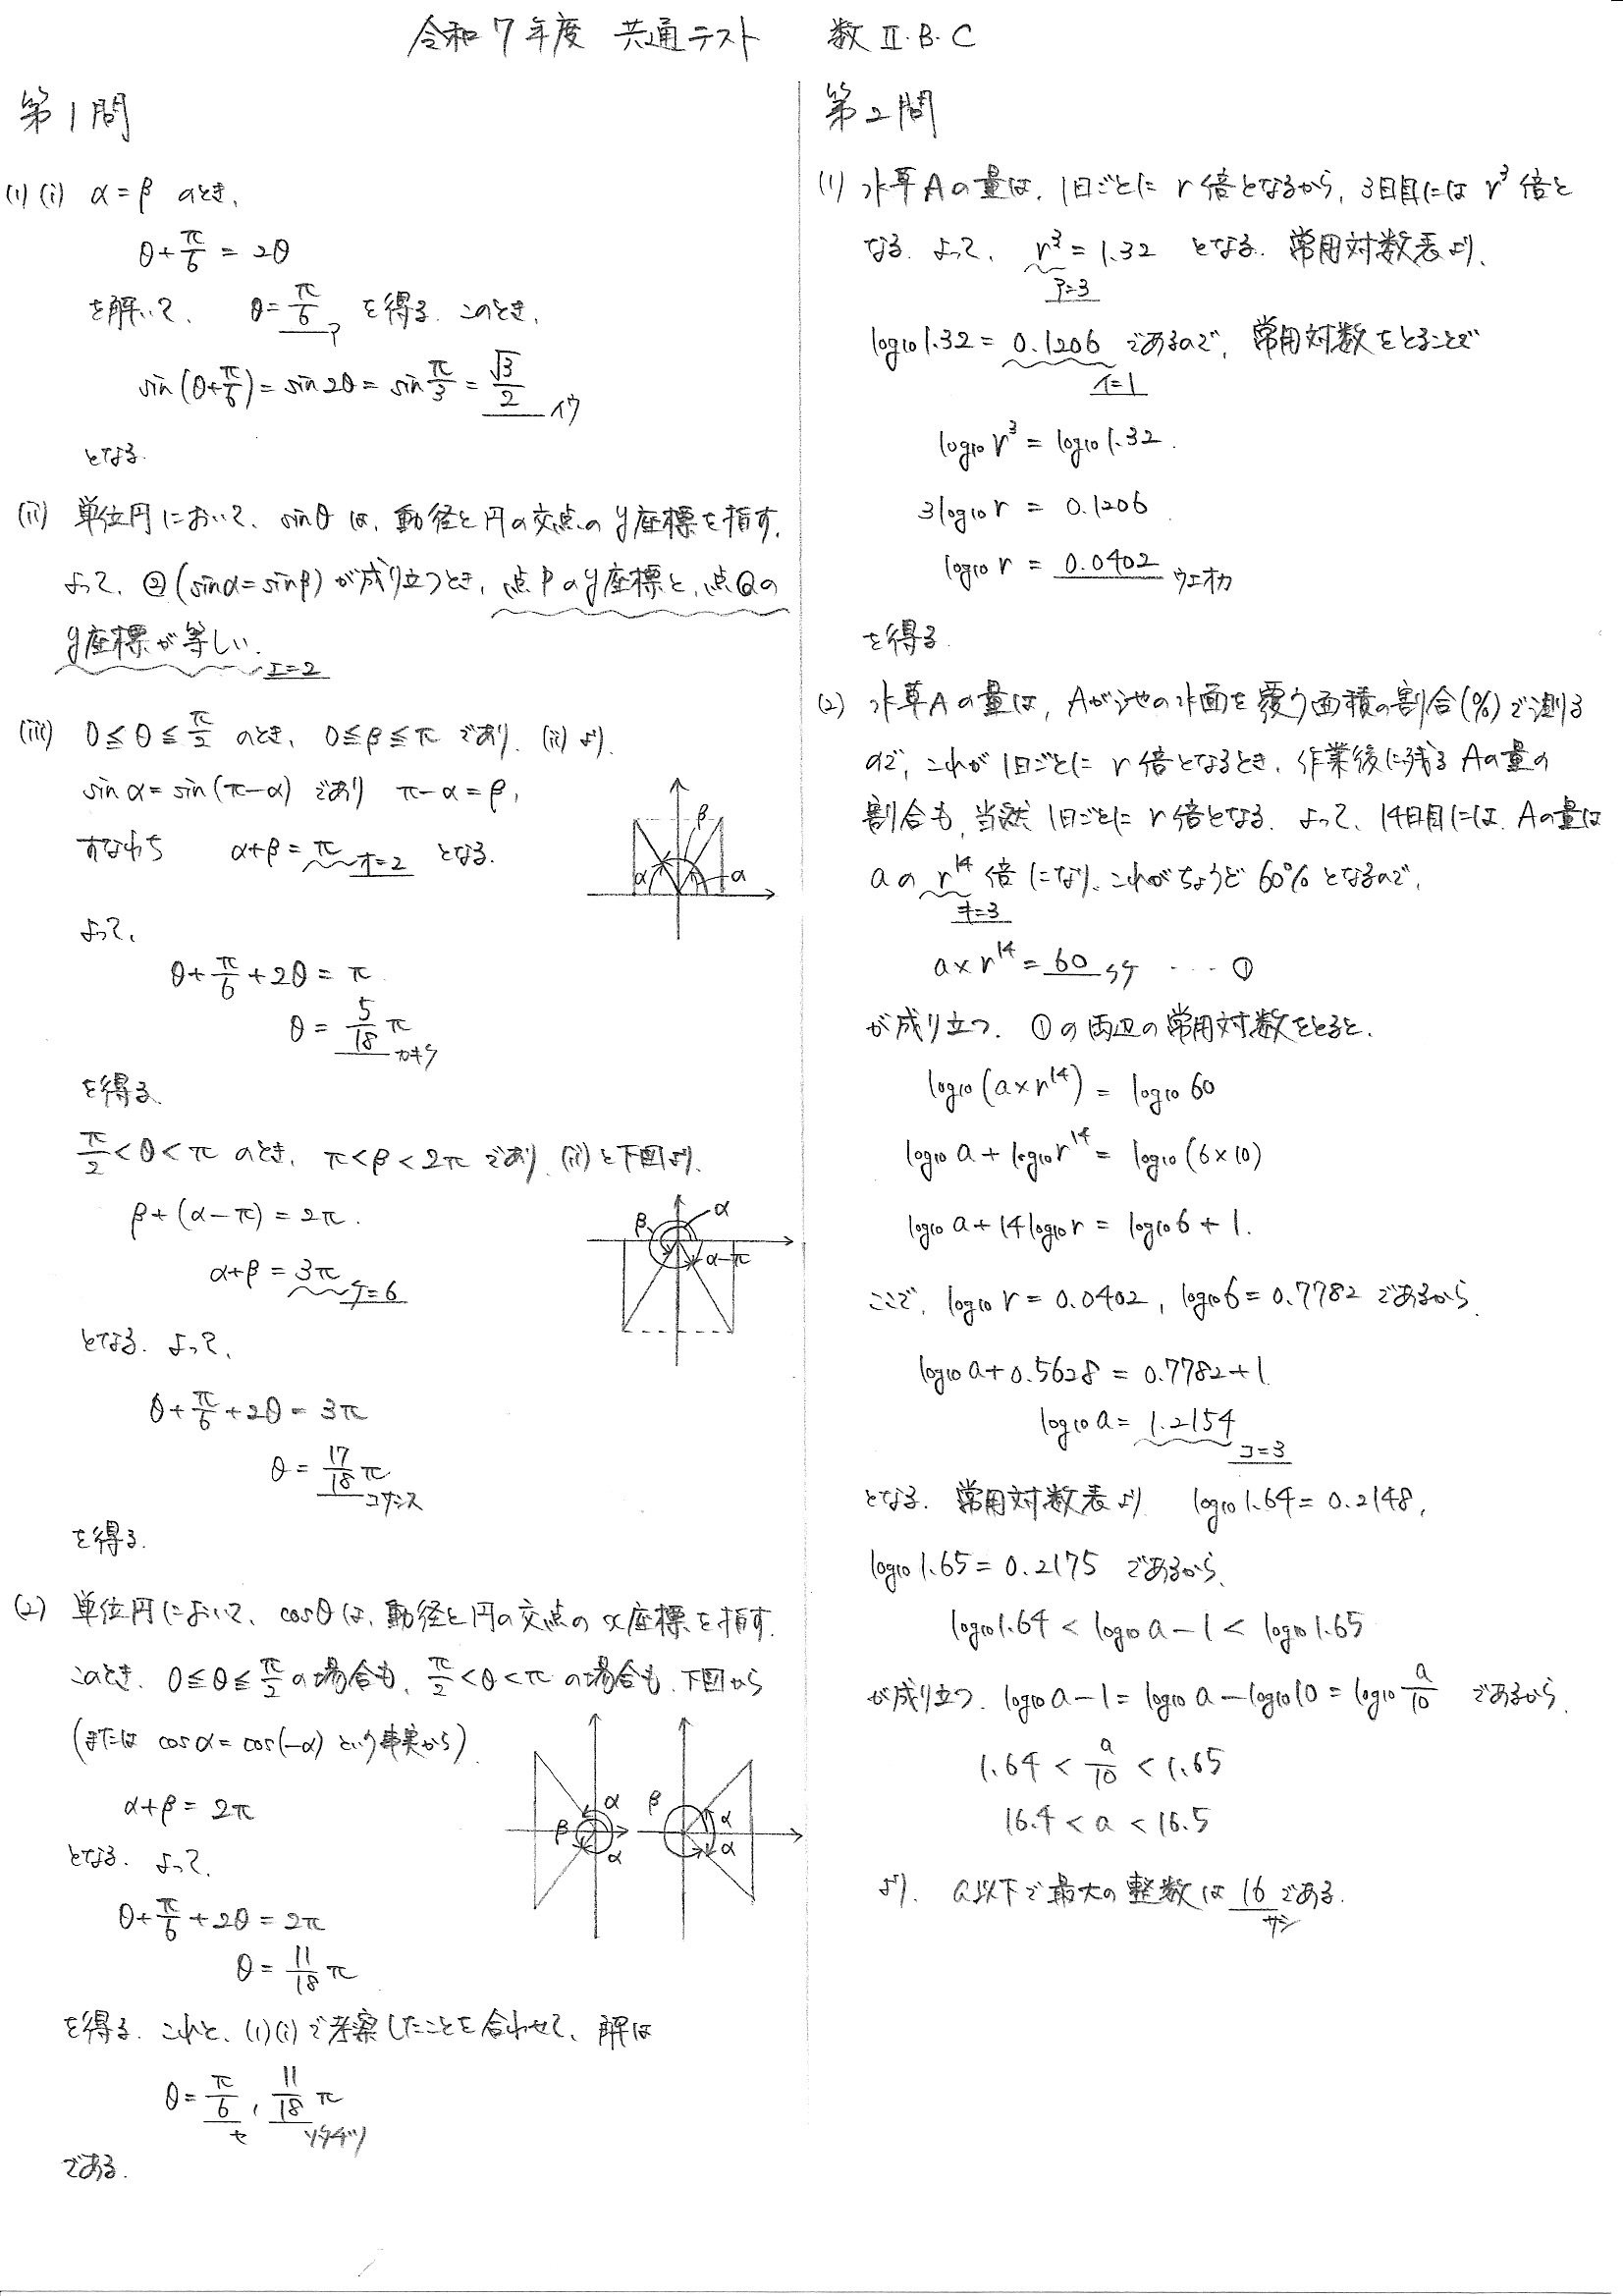 令和7年度 共通テスト 数Ⅱ・B・C
第1問
(1)(i) α=β のとき,
θ+π/6 = 2θ
を解いて, θ=π/6 ア を得る. このとき,
sin(θ+π/6)=sin2θ=sinπ/3=√3/2 イウ
となる.
(ii) 単位円において, sinθ は, 動径と円の交点の y座標を指す.
よって, ②(sinα=sinβ)が成り立つとき, 点Pのy座標と, 点Qの
y座標が等しい. エ=2
(iii) 0≦θ≦π/2 のとき, 0≦β≦π であり, (ii)より,
sinα=sin(π-α) であり π-α=β,
すなわち α+β=π オ=2 となる.
β
α α
よって,
θ+π/6+2θ=π
θ=5/18π カキク
を得る.
π/2<θ<π のとき, π<β<2π であり, (ii)と下図より,
β+(α-π)=2π.
β α
α-π
α+β=3π ケ=6
となる. よって,
θ+π/6+2θ=3π
θ=17/18π コサシス
を得る.
(2) 単位円において, cosθは, 動径と円の交点のx座標を指す.
このとき, 0≦θ≦π/2の場合も, π/2<θ<πの場合も, 下図から
(または cosα=cos(-α) という事実から)
α+β=2π
β α α
β α α
となる. よって,
θ+π/6+2θ=2π
θ=11/18π
を得る. これと, (1)(i)で考察したことを合わせて, 解は
θ=π/6 セ, 11/18π ソタチツ
である.
第2問
(1) 水草Aの量は, 1日ごとに r倍となるから, 3日目には r³倍と
なる. よって, r³=1.32 となる. 常用対数表より,
ア=3
log₁₀1.32=0.1206 であるので, 常用対数をとることで
イ=1
log₁₀r³=log₁₀1.32.
3log₁₀r=0.1206
log₁₀r=0.0402 ウエオカ
を得る.
(2) 水草Aの量は, Aが池の水面を覆う面積の割合(%)で測る
ので, これが1日ごとに r倍となるとき, 作業後に残るAの量の
割合も, 当然1日ごとに r倍となる. よって, 14日目には, Aの量は
aの r¹⁴倍になり, これがちょうど60%となるので,
キ=3
a×r¹⁴=60 クケ ・・・・①
が成り立つ. ①の両辺の常用対数をとると,
log₁₀(a×r¹⁴)=log₁₀60
log₁₀a+log₁₀r¹⁴=log₁₀(6×10)
log₁₀a+14log₁₀r=log₁₀6+1.
ここで, log₁₀r=0.0402, log₁₀6=0.7782 であるから,
log₁₀a+0.5628=0.7782+1
log₁₀a=1.2154 コ=3
となる. 常用対数表より log₁₀1.64=0.2148,
log₁₀1.65=0.2175 であるから,
log₁₀1.64<log₁₀a-1<log₁₀1.65
が成り立つ. log₁₀a-1=log₁₀a-log₁₀10=log₁₀a/10 であるから,
1.64<a/10<1.65
16.4<a<16.5
より, a以下で最大の整数は16である.
サシ